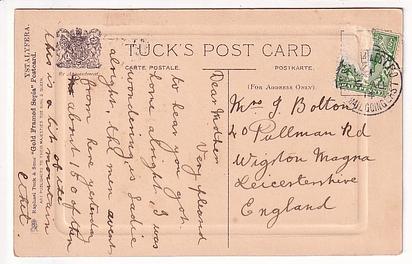 YSTALYFERA.
Raphael Tuck & Sons' "Gold Framed Sepia" Postcard.
By Appointment.
TUCK'S POST CARD
CARTE POSTALE. POSTKARTE.
(FOR ADDRESS ONLY.)
Dear Mother
Very pleased
to hear you got
home alright, I was
wondering is Sadie
alright. the men went
from here yesterday
about 160 of them
this is a bit of the mountain
Mrs J Bolton
40 Pullman Rd
Wigston Magna
Leicestershire
England